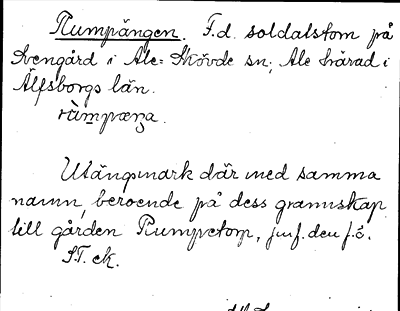 Rumpängen. F.d. soldatstom på
Svengård i Ale-Skövde sn; Ale härad i
Älfsborgs län.
Utängsmark där med samma
namn, beroende på dess grannskap
till gården Rumpetorp, jmf. den f.ö.
ST. ek.